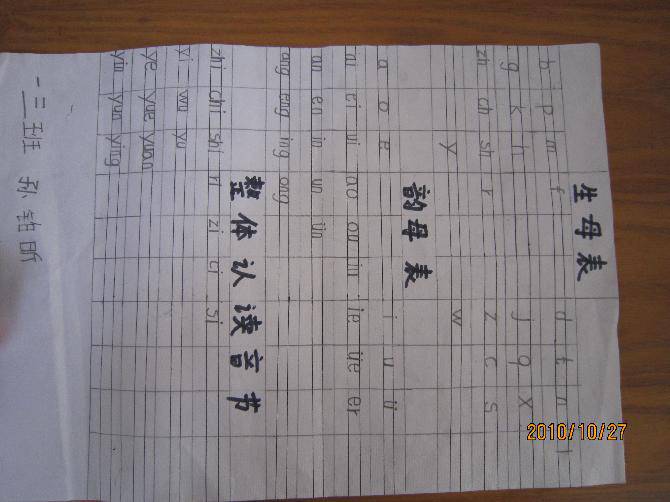 生母表
b p m f d t n l
g k h j q x
zh ch sh r z c s
y w
韵母表
a o e i u ü
ai ei ui ao ou iu ie üe er
an en in un ün
ang eng ing ong
整体认读音节
zhi chi shi ri zi ci si
yi wu yu
ye yue yuan
yin yun ying
班 孙
2010/10/27